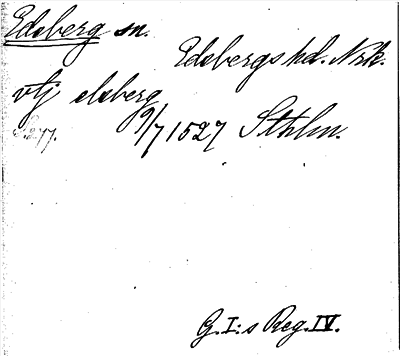 Edsberg sn.
Edsbergs hd. Nrk.
vtj elsberg
9/7 1527 Sthlm.
S. 277.
G. I:s Reg. IV.